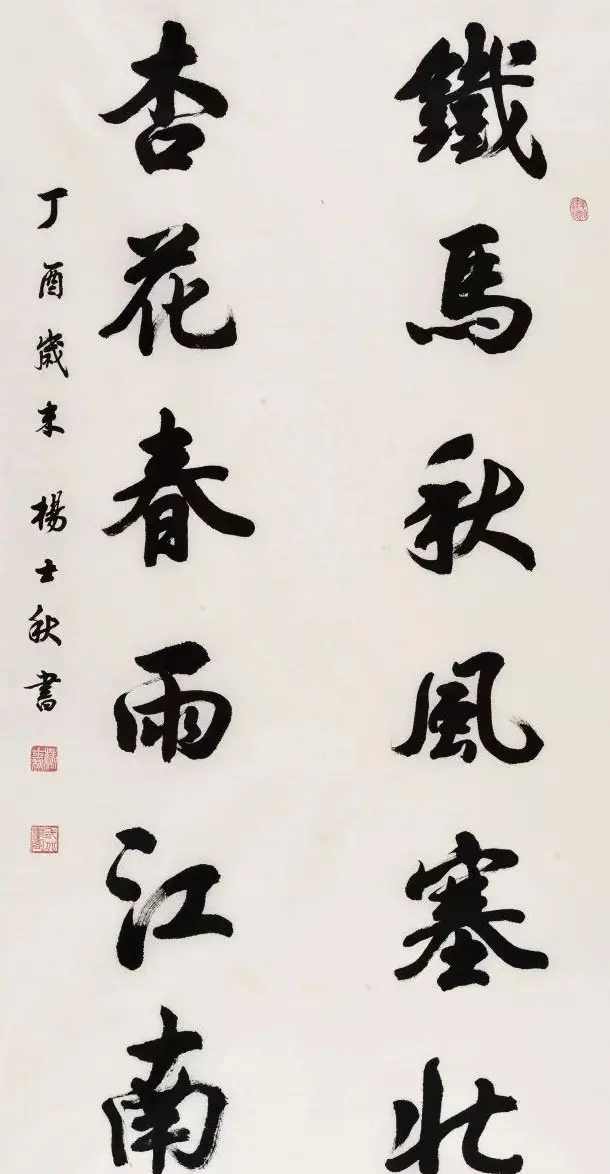 鐵馬秋風塞北
杏花春雨江南
丁酉歲末 楊士秋書